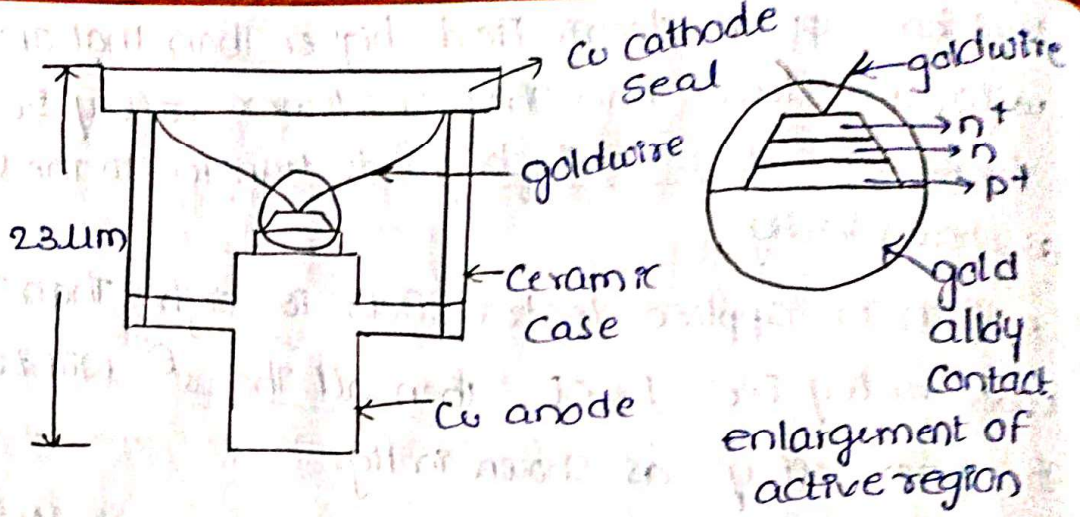 Cu cathode
seal
goldwire
23µm
ceramic
case
Cu anode
goldwire
n+
n
p+
gold
alloy
contact
enlargement of
active region